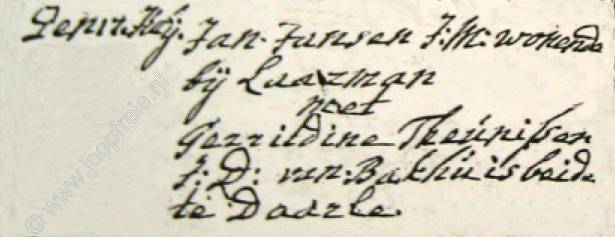 Den 17. Meij. Jan Jansen J:M: wonende
bij Laarman
met
Gerridine Theunissen
J: D: van Bakhuis beide
te Daarle.
© www.jooptrele.nl